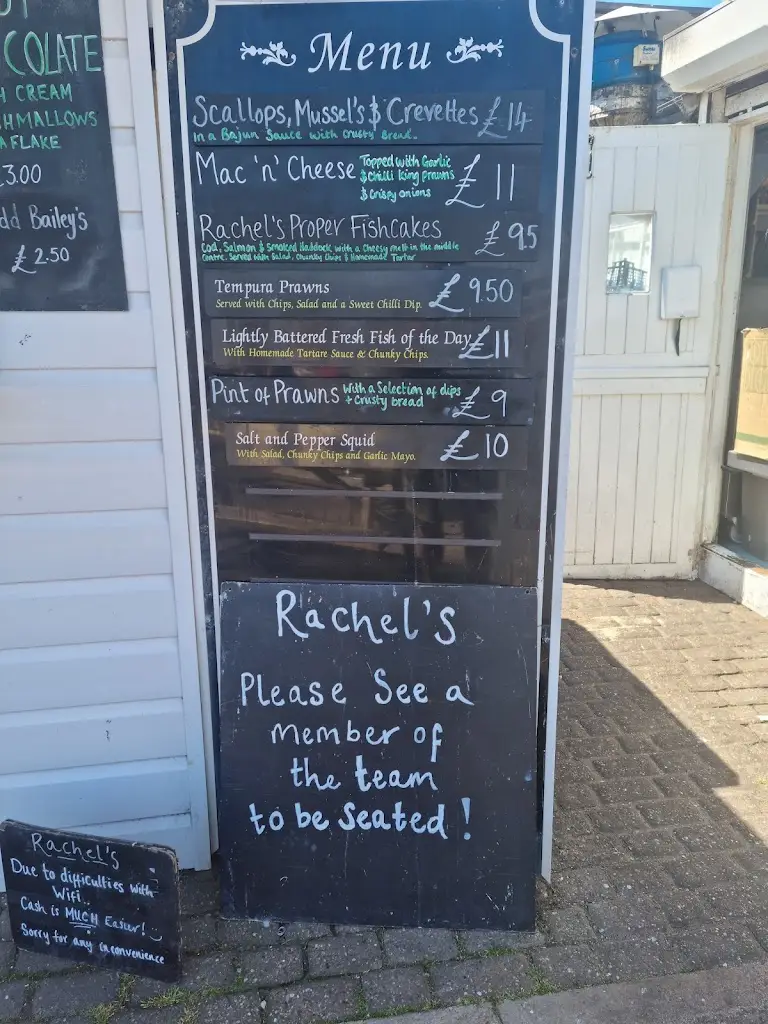 COLATE
CREAM
SHMALLOWS
FLAKE
£3.00
dd Bailey's
£2.50
Menu
Scallops, Mussel's & Crevettes £14
In a Bajun Sauce with Crusty Bread.
Mac 'n' Cheese Topped with Garlic £11
& Chilli King prawns
& Crispy onions
Rachel's Proper Fishcakes £9.5
Cod, Salmon & Smoked Haddock with a Cheesy melt in the middle
Centre. Served with Salad, Chunky Chips & Homemade Tartar
Tempura Prawns £9.50
Served with Chips, Salad and a Sweet Chilli Dip.
Lightly Battered Fresh Fish of the Day £11
With Homemade Tartare Sauce & Chunky Chips.
Pint of Prawns with a Selection of dips £9
+ Crusty bread
Salt and Pepper Squid £10
With Salad, Chunky Chips and Garlic Mayo.
Rachel's
Please See a
member of
the team
to be Seated!
Rachel's
Due to difficulties with
Wifi..
Cash is MUCH Easier!
Sorry for any inconvenience